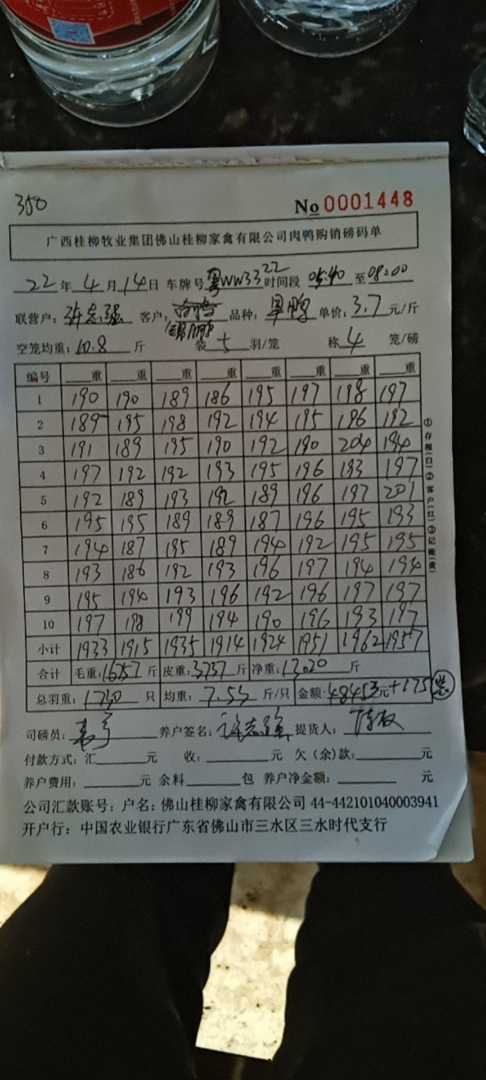 350
No 0001448
广西桂柳牧业集团佛山桂柳家禽有限公司肉鸭购销磅码单
22 年 4 月 14 日 车牌号 粤WW3322 时间段 05:40 至 08:00
联营户: 客户: 品种: 单价: 3.7 元/斤
空笼均重: 10.8 斤 装 5 羽/笼 称 4 笼/磅
编号 重 重 重 重 重 重 重 重
1 190 190 189 186 195 197 198 197
2 189 195 198 192 194 195 196 192
3 191 189 195 190 192 190 204 194
4 197 192 192 193 195 196 193 197
5 192 189 193 192 189 196 197 201
6 195 195 189 189 187 196 195 193
7 194 187 195 189 194 192 195 195
8 193 186 192 193 196 197 194 194
9 195 194 193 196 192 196 197 197
10 197 198 199 194 190 196 193 197
小计 1933 1915 1935 1914 1924 1951 1962 1957
合计 毛重: 斤 皮重: 斤 净重: 斤
总羽重: 只 均重: 7.55 斤/只 金额: 元+175
①存根(白)②客户(红)③记账(黄)
司磅员: 养户签名: 提货人:
付款方式: 汇 元 收: 元 欠(余)款: 元
养户费用: 元 余料 包 养户净金额: 元
公司汇款账号: 户名: 佛山桂柳家禽有限公司 44-442101040003941
开户行: 中国农业银行广东省佛山市三水区三水时代支行